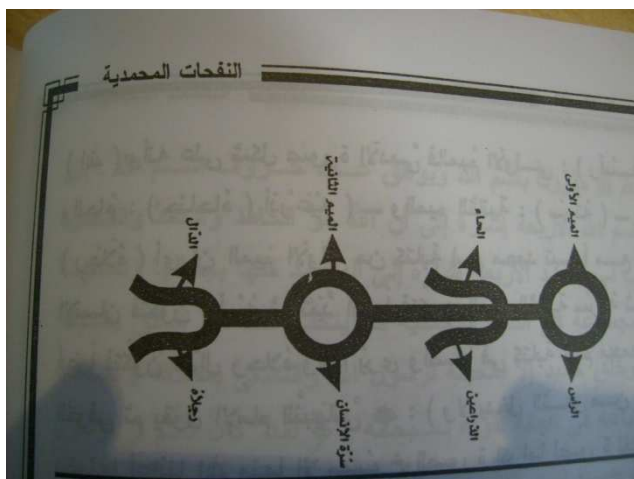 النفحات المحمدية
الميم الأولى
الحاء
الميم الثانية
الدال
الراس
الذراعين
سرة الإنسان
رجلاه